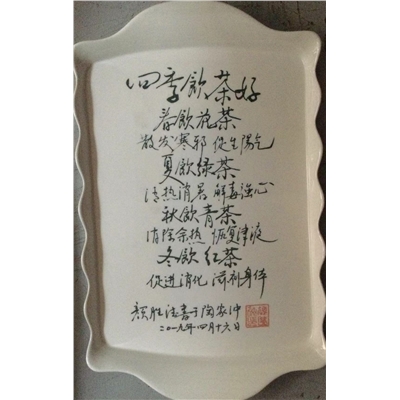 四季飲茶好
春飲花茶
散发寒邪 促生陽气
夏飲绿茶
清热消暑 解毒強心
秋飲青茶
消除余热 恢复津液
冬飲红茶
促进消化 滋补身体
顏胜法書于陶家冲
二〇一九年四月十六日